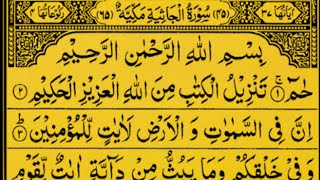 اٰيَاتُهَا ٣٧ (٤٥) سُوْرَةُ الْجَاثِيَةِ مَكِّيَّةٌ (٦٥) رُكُوْعَاتُهَا ٤
بِسْمِ اللهِ الرَّحْمٰنِ الرَّحِيْمِ
حٰمٓ ۚ ١ تَنْزِيْلُ الْكِتٰبِ مِنَ اللهِ الْعَزِيْزِ الْحَكِيْمِ ٢
اِنَّ فِى السَّمٰوٰتِ وَ الْاَرْضِ لَاٰيٰتٍ لِّلْمُؤْمِنِيْنَ ؕ ٣
وَ فِىْ خَلْقِكُمْ وَمَا يَبُثُّ مِنْ دَآبَّةٍ اٰيٰتٌ لِّقَوْمٍ